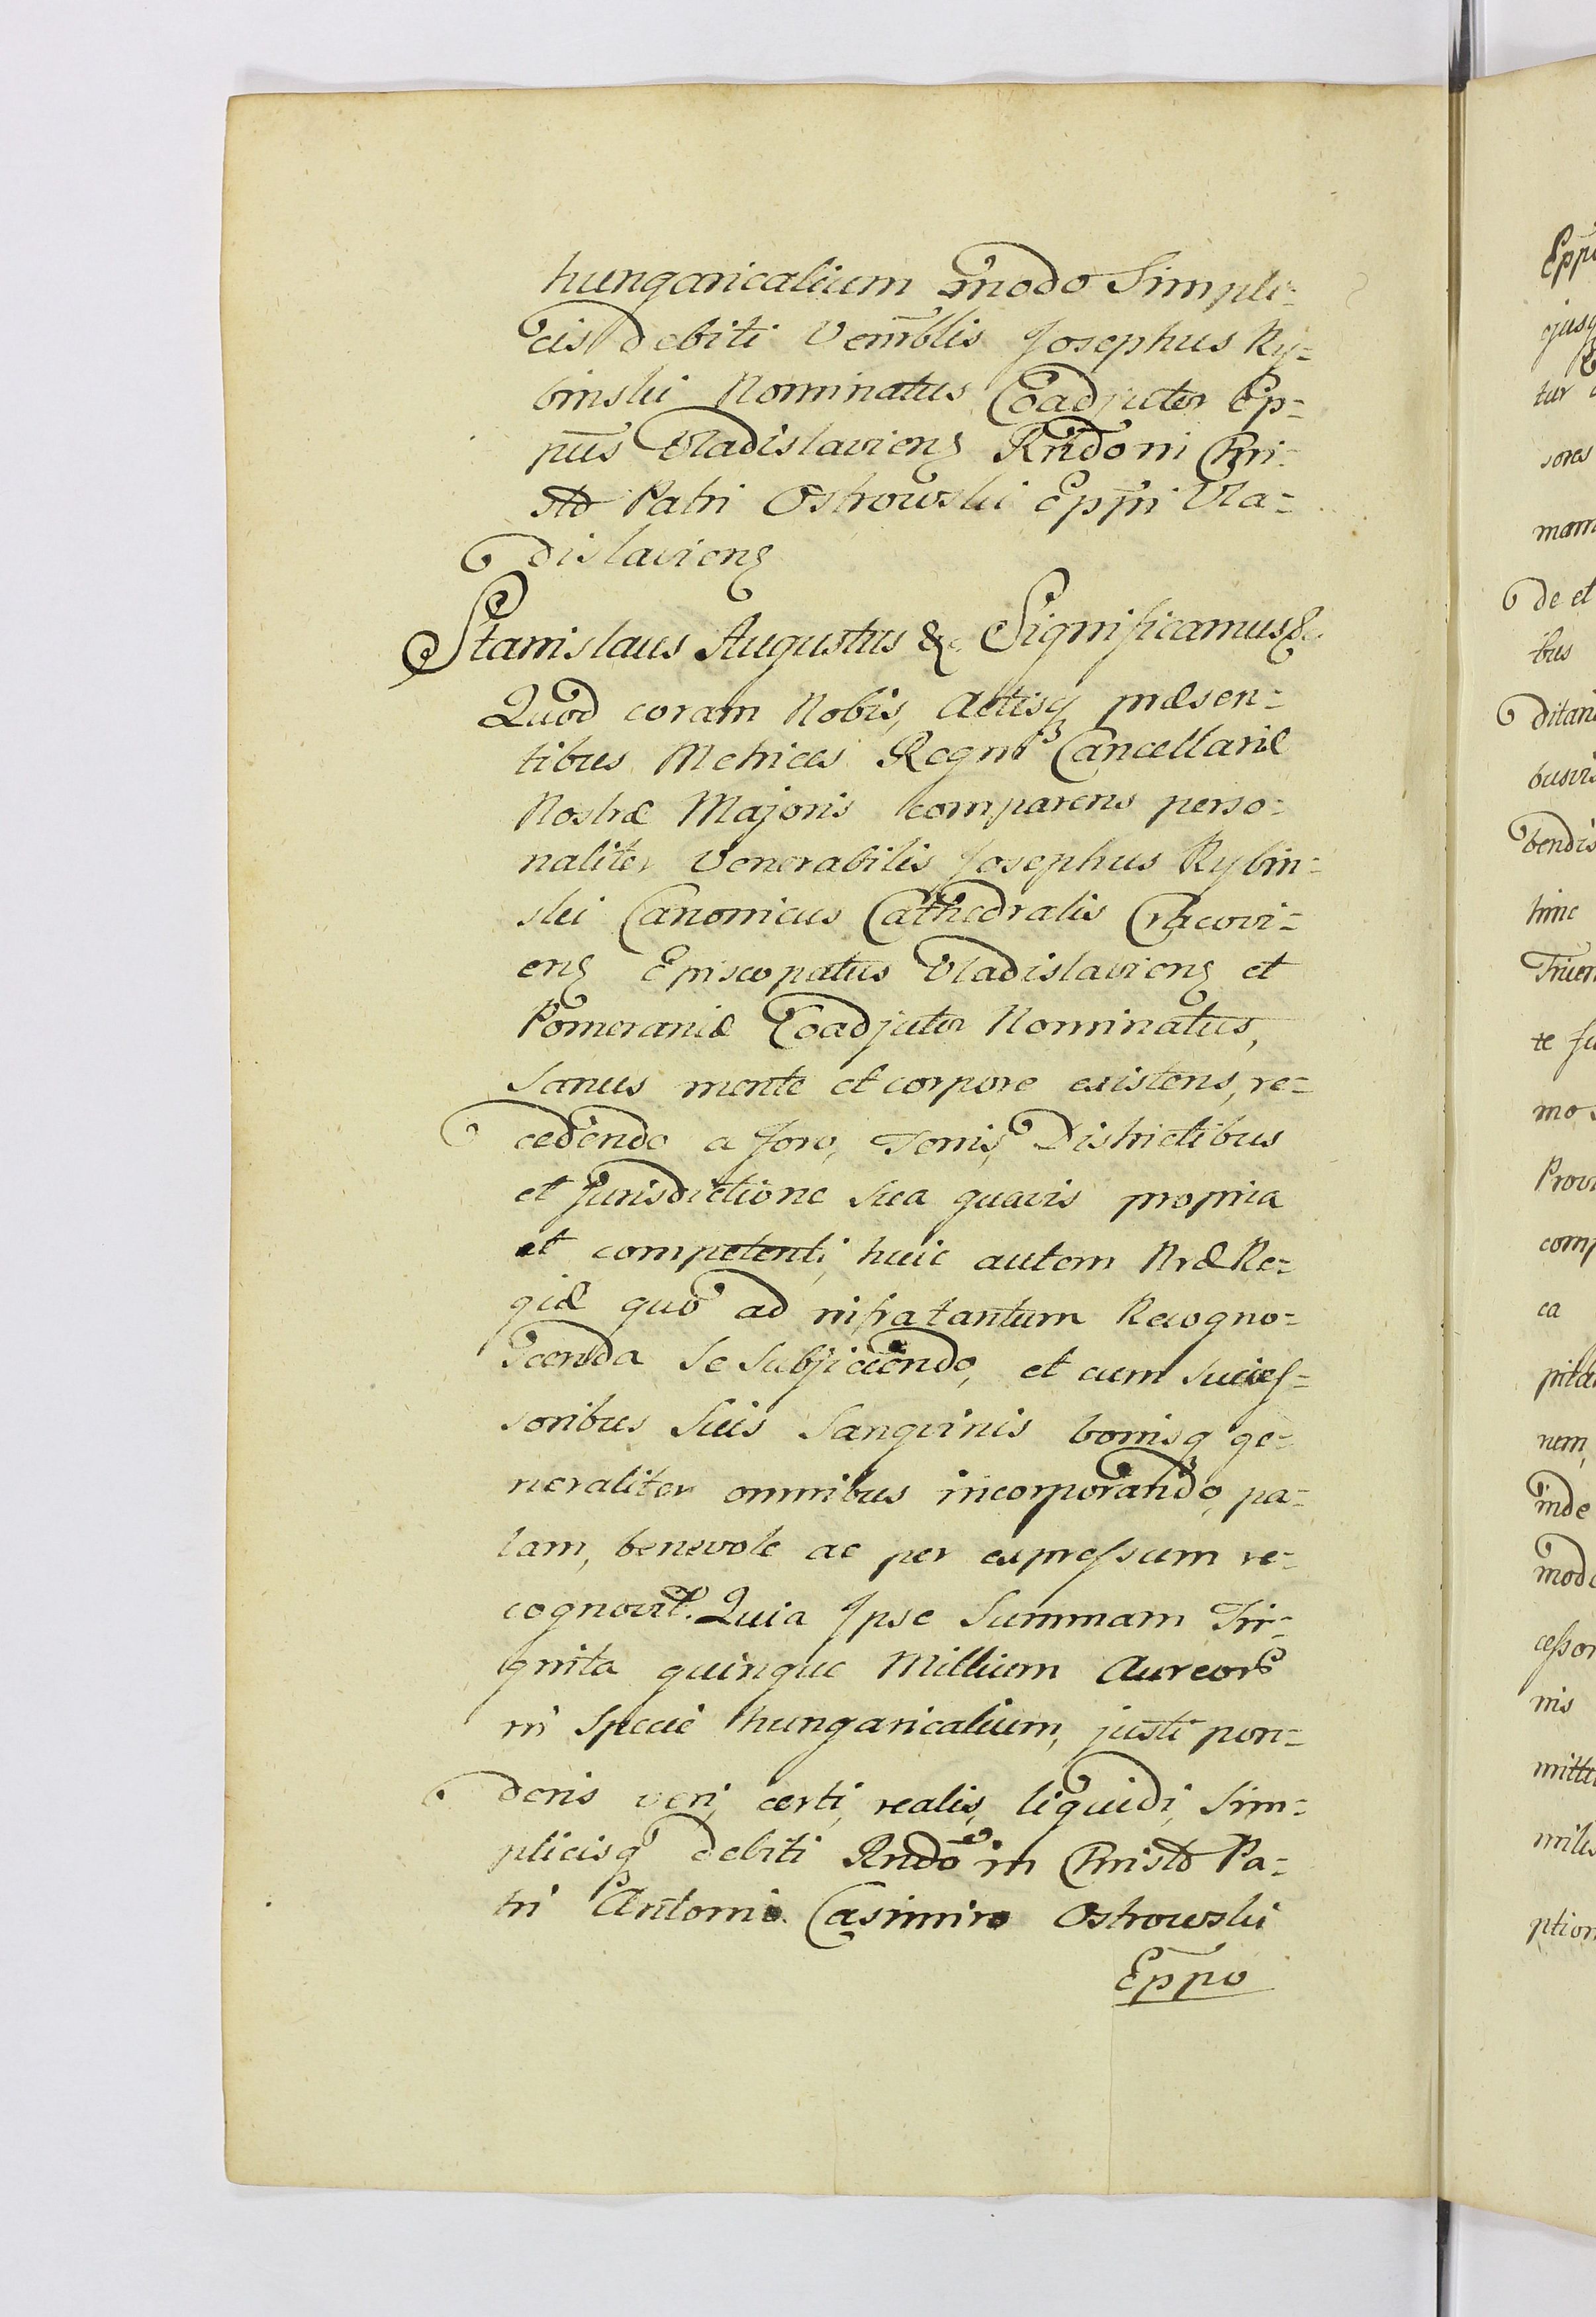 hungaricalium modo Simpli-
cis debiti Venrblis Josephus Ry-
binski Nominatus Coadjutor Ep-
pus Vladislaviens Rndo in Chri-
sto Patri Ostrowski Eppi Vla-
dislaviens
Stanislaus Augustus &c. Significamus &c.
Quod coram Nobis, Actisq præsen-
tibus Metrices Regni Cancellariæ
Nostræ Majoris comparens perso-
naliter Venerabilis Josephus Rybin-
ski Canonicus Cathedralis Cracovi-
ens Episcopatus Vladislaviens et
Pomeraniæ Coadjutor Nominatus,
sanus mente et corpore existens, re-
cedendo a foro, Terris, Districtibus
et Jurisdictione sua quavis propria
et competenti, huic autem Nræ Re-
giæ quo ad infra tantum Recogno-
scenda se subjiciendo, et cum succes-
soribus suis sangvinis bonisq ge-
neraliter omnibus incorporando, pa-
lam, benevole ac per expressum re-
cognovit. Quia Ipse Summam Tri-
ginta quinque Millium Aureor
in specie hungaricalium, justi pon-
deris veri, certi, realis, liquidi, sim-
plicisq debiti Rndo in Christo Pa-
tri Antonio Casimiro Ostrowski
Eppo
Eppo
ejusq
tur
sores
mam
de et
bus
ditan
busvis
bendis
hinc
te fu
mo
Prov
comp
ca
nem,
inde
modo
cessor
nis
mitte
ption